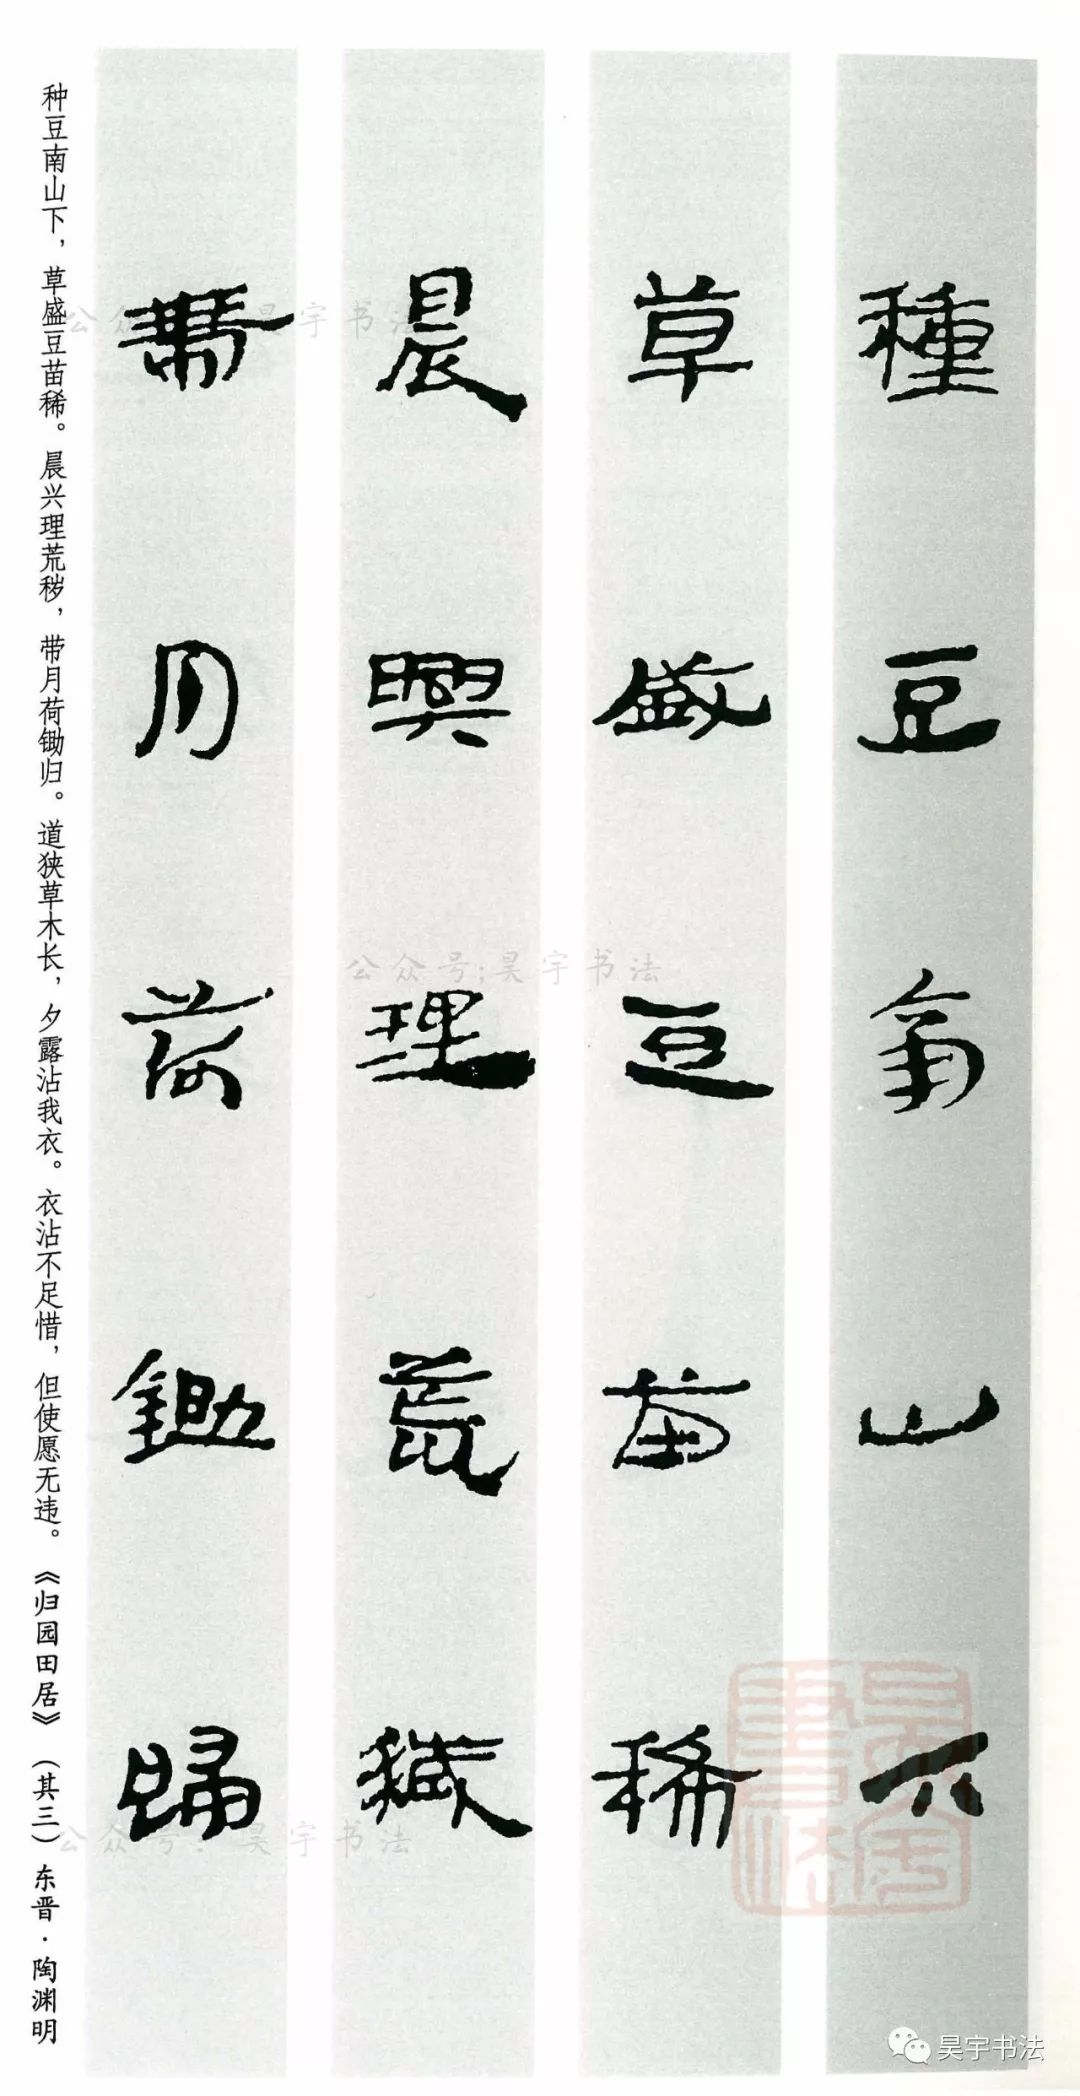 種豆南山下
草盛豆苗稀
晨興理荒穢
帶月荷鋤歸
种豆南山下，草盛豆苗稀。晨兴理荒秽，带月荷锄归。道狭草木长，夕露沾我衣。衣沾不足惜，但使愿无违。《归园田居》（其三）东晋·陶渊明
公众号:昊宇书法
公众号:昊宇书法
公众号:昊宇书法
昊宇書法
昊宇书法